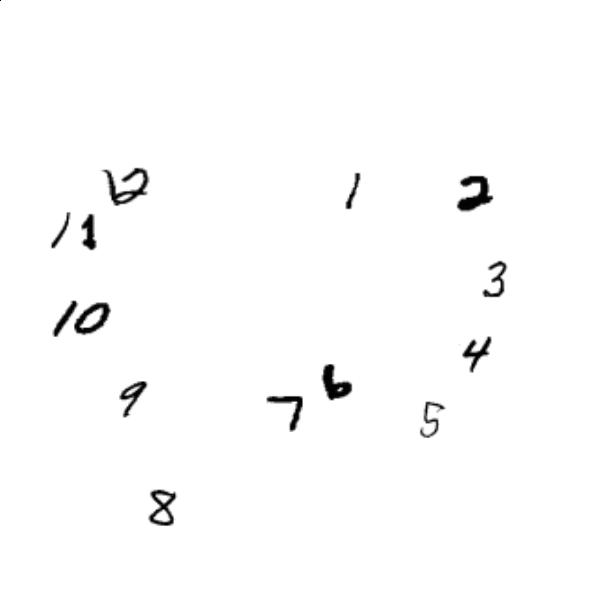 12 1 2
11
3
10
4
6
9 7 5
8